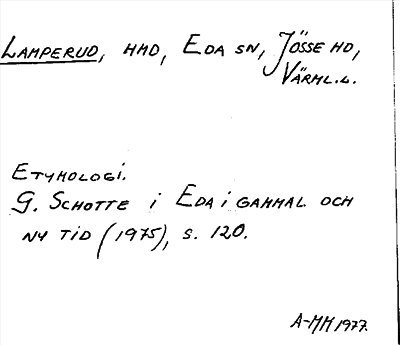 LAMPERUD, HMD, EDA SN, JÖSSE HD,
VÄRML.L.
ETYMOLOGI.
G. SCHOTTE i EDA i GAMMAL OCH
NY TID (1975), S. 120.
A-MM 1977.